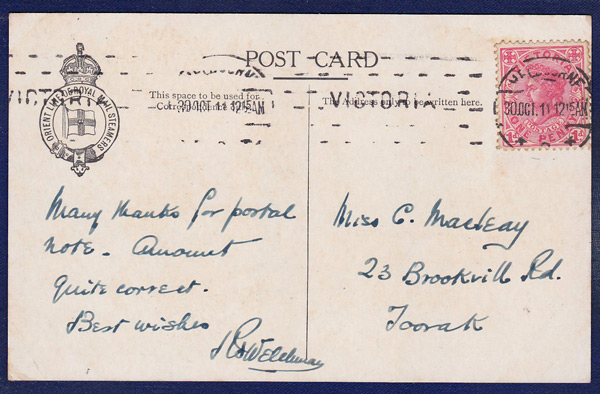 POST CARD
ORIENT LINE OF ROYAL MAIL STEAMERS
This space to be used for
VICTORIA
30 OCT. 11 12 15 AM
VICTORIA
The Address only to be written here.
30 OCT. 11 12 15 AM
PENNY
1d
Many thanks for postal
note. Amount
quite correct.
Best wishes
Miss C. Macleay
23 Brookvill Rd.
Toorak